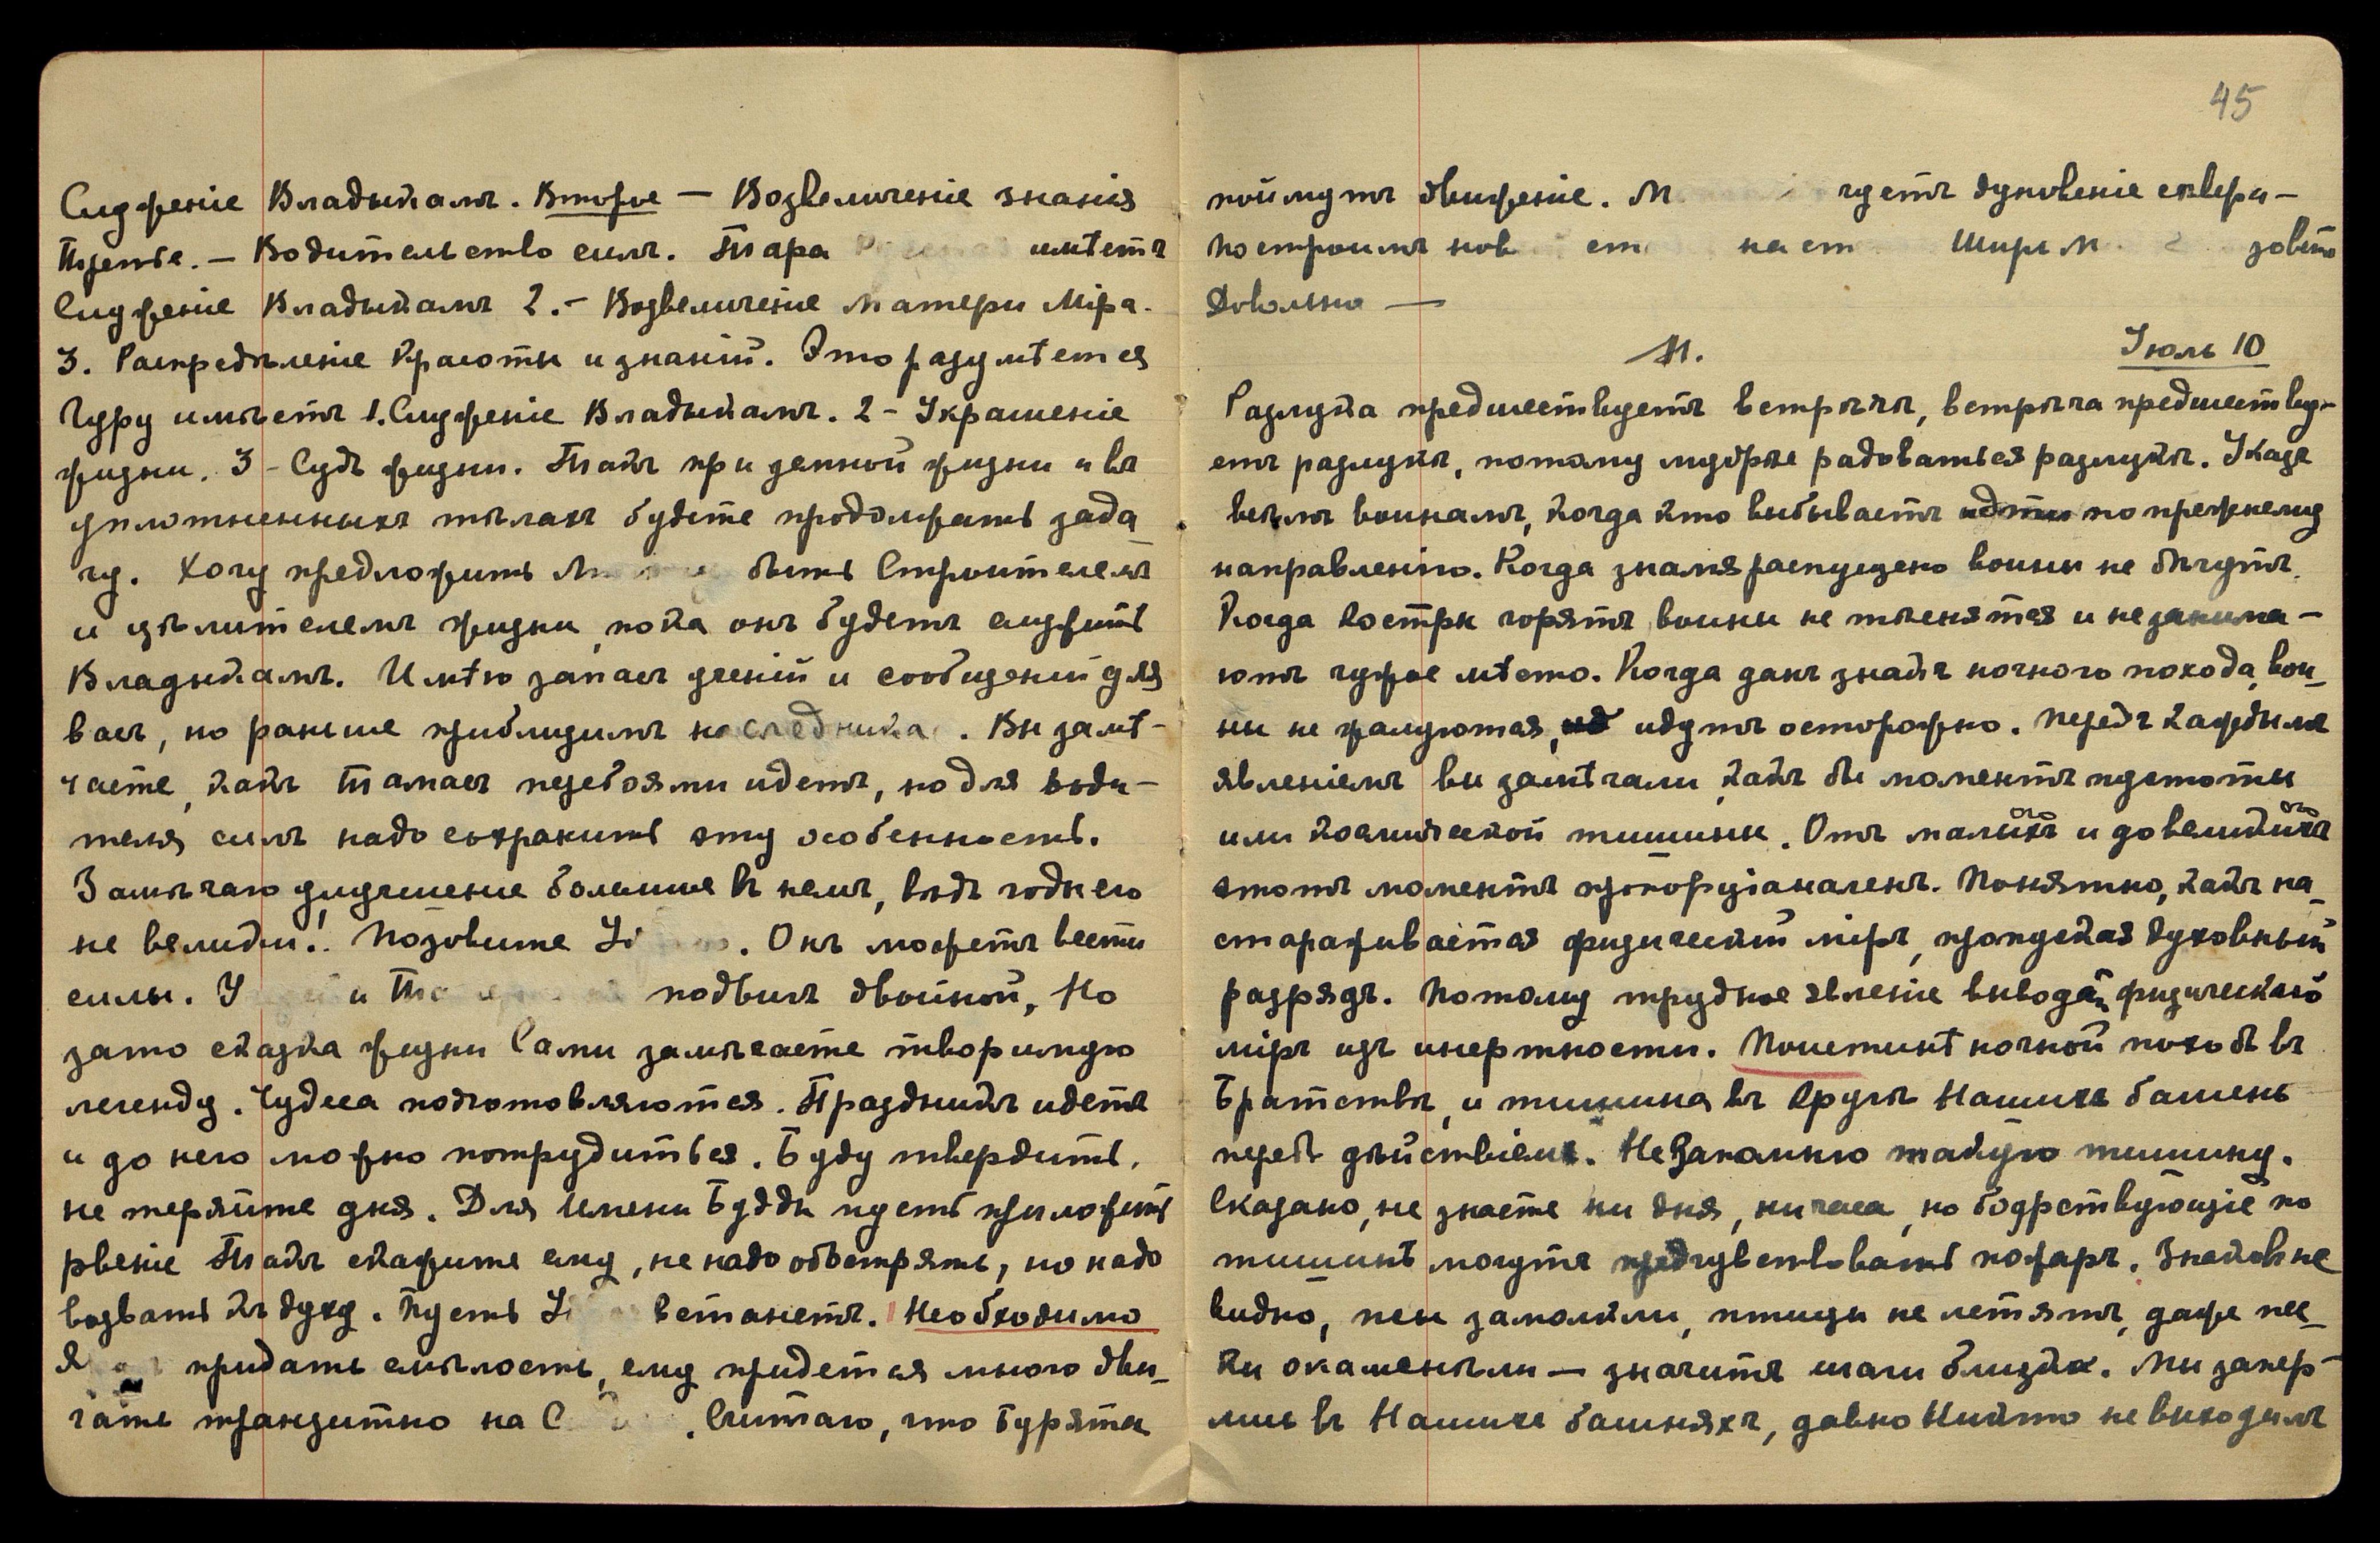 Служеніе Владыкамъ. Второе — Возвеличеніе знанія
Третье. — Водительство силъ. Тара имѣетъ
Служеніе Владыкамъ 2. — Возвеличеніе Матери Міра.
3. Распредѣленіе Красоты и знаній. Это разумѣется
Гуру имѣетъ 1. Служеніе Владыкамъ. 2 - Украшеніе
жизни. 3 - Судъ жизни. Такъ при земной жизни и въ
уплотненныхъ тѣлахъ будете продолжать зада
чу. Хочу предложить быть Строителемъ
и цѣлителемъ жизни, пока онъ будетъ служить
Владыкамъ. Имѣю запасъ ученій и сообщеній для
васъ, но раньше приблизимъ наследника. Вы замѣ-
чаете, какъ Тамасъ перебоями идетъ, но для води-
теля силъ надо сохранить эту особенность.
Замѣчаю улучшеніе больше въ немъ, вѣдь годы его
не велики!. Позовите. Онъ можетъ вести
силы. У и подвигъ двойной, Но
зато сказка жизни Сами замѣчаете творимую
легенду. Чудеса подготовляются. Праздникъ идетъ
и до него можно потрудиться. Буду твердить,
не теряйте дня. Для Имени Будды пусть приложитъ
рвеніе Такъ скажите ему, не надо обострять, но надо
воззвать къ духу. Пусть встанетъ. Необходимо
придать смѣлость, ему придется много дви-
гать транзитно на. Считаю, что Буряты
45
поймутъ движеніе. М чуетъ дуновеніе сѣвера —
Построимъ нов ст на ст Ширь М зовѣтъ
Довольно —
М. Іюль 10
Разлука предшествуетъ встрѣчѣ, встрѣча предшеству-
етъ разлукѣ, потому мудрѣе радоваться разлукѣ. Указъ
всѣмъ воинамъ, когда кто выбываетъ идти по прежнему
направленію. Когда знамя распущено воины не бѣгутъ.
Когда Костры горятъ, воины не тѣснятся и не занима-
ютъ чужое мѣсто. Когда данъ знакъ ночного похода, вои-
ны не жалуются, ид идутъ осторожно. Передъ каждымъ
явленіемъ вы замѣчали, какъ бы моментъ пустоты
или космической тишины. Отъ малыхъ ого и до великихъ ого
этотъ моментъ пропорціаналенъ. Понятно, какъ на-
стораживается физическій міръ, пропуская духовный
разрядъ. Потому трудное явленіе вывода физическаго
міръ изъ инертности. Поистинѣ ночной походъ въ
Братствѣ, и тишина въ Кругѣ Нашихъ башень
передъ дѣйствіемъ. Не Запомню такую тишину.
Сказано, не знаете ни дня, ни часа, но бодрствующіе по
тишинѣ могутъ предчувствовать пожаръ. Знаковъ не
видно, псы замолкли, птицы не летятъ, даже пес-
ки окаменѣли — значитъ шаги близки. Мы запер-
лись въ Нашихъ башняхъ, давно Никто не выходилъ